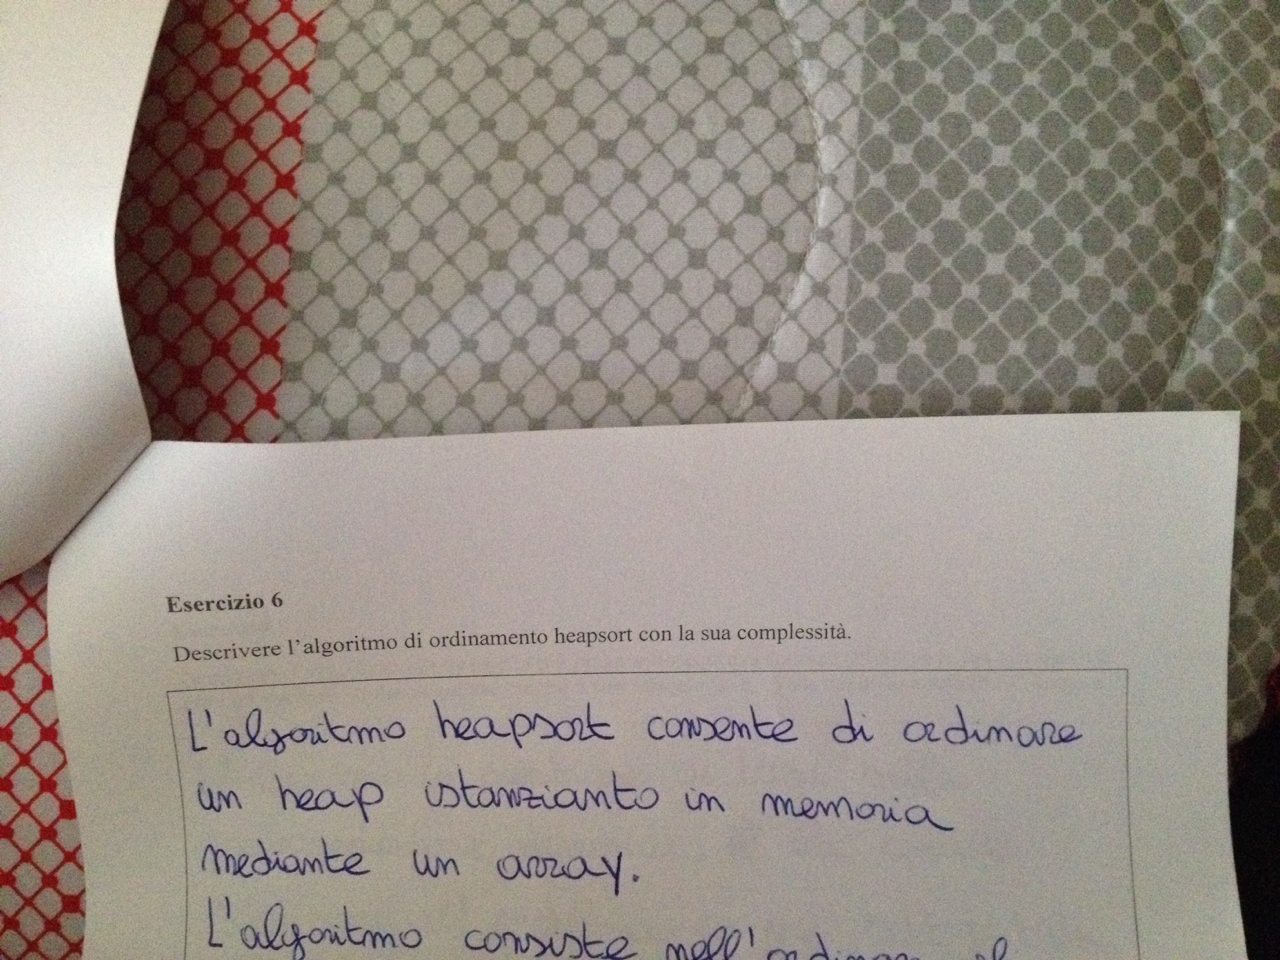 Esercizio 6
Descrivere l'algoritmo di ordinamento heapsort con la sua complessità.
L'algoritmo heapsort consente di ordinare
un heap istanzianto in memoria
mediante un array.
L'algoritmo consiste nell'ordinare